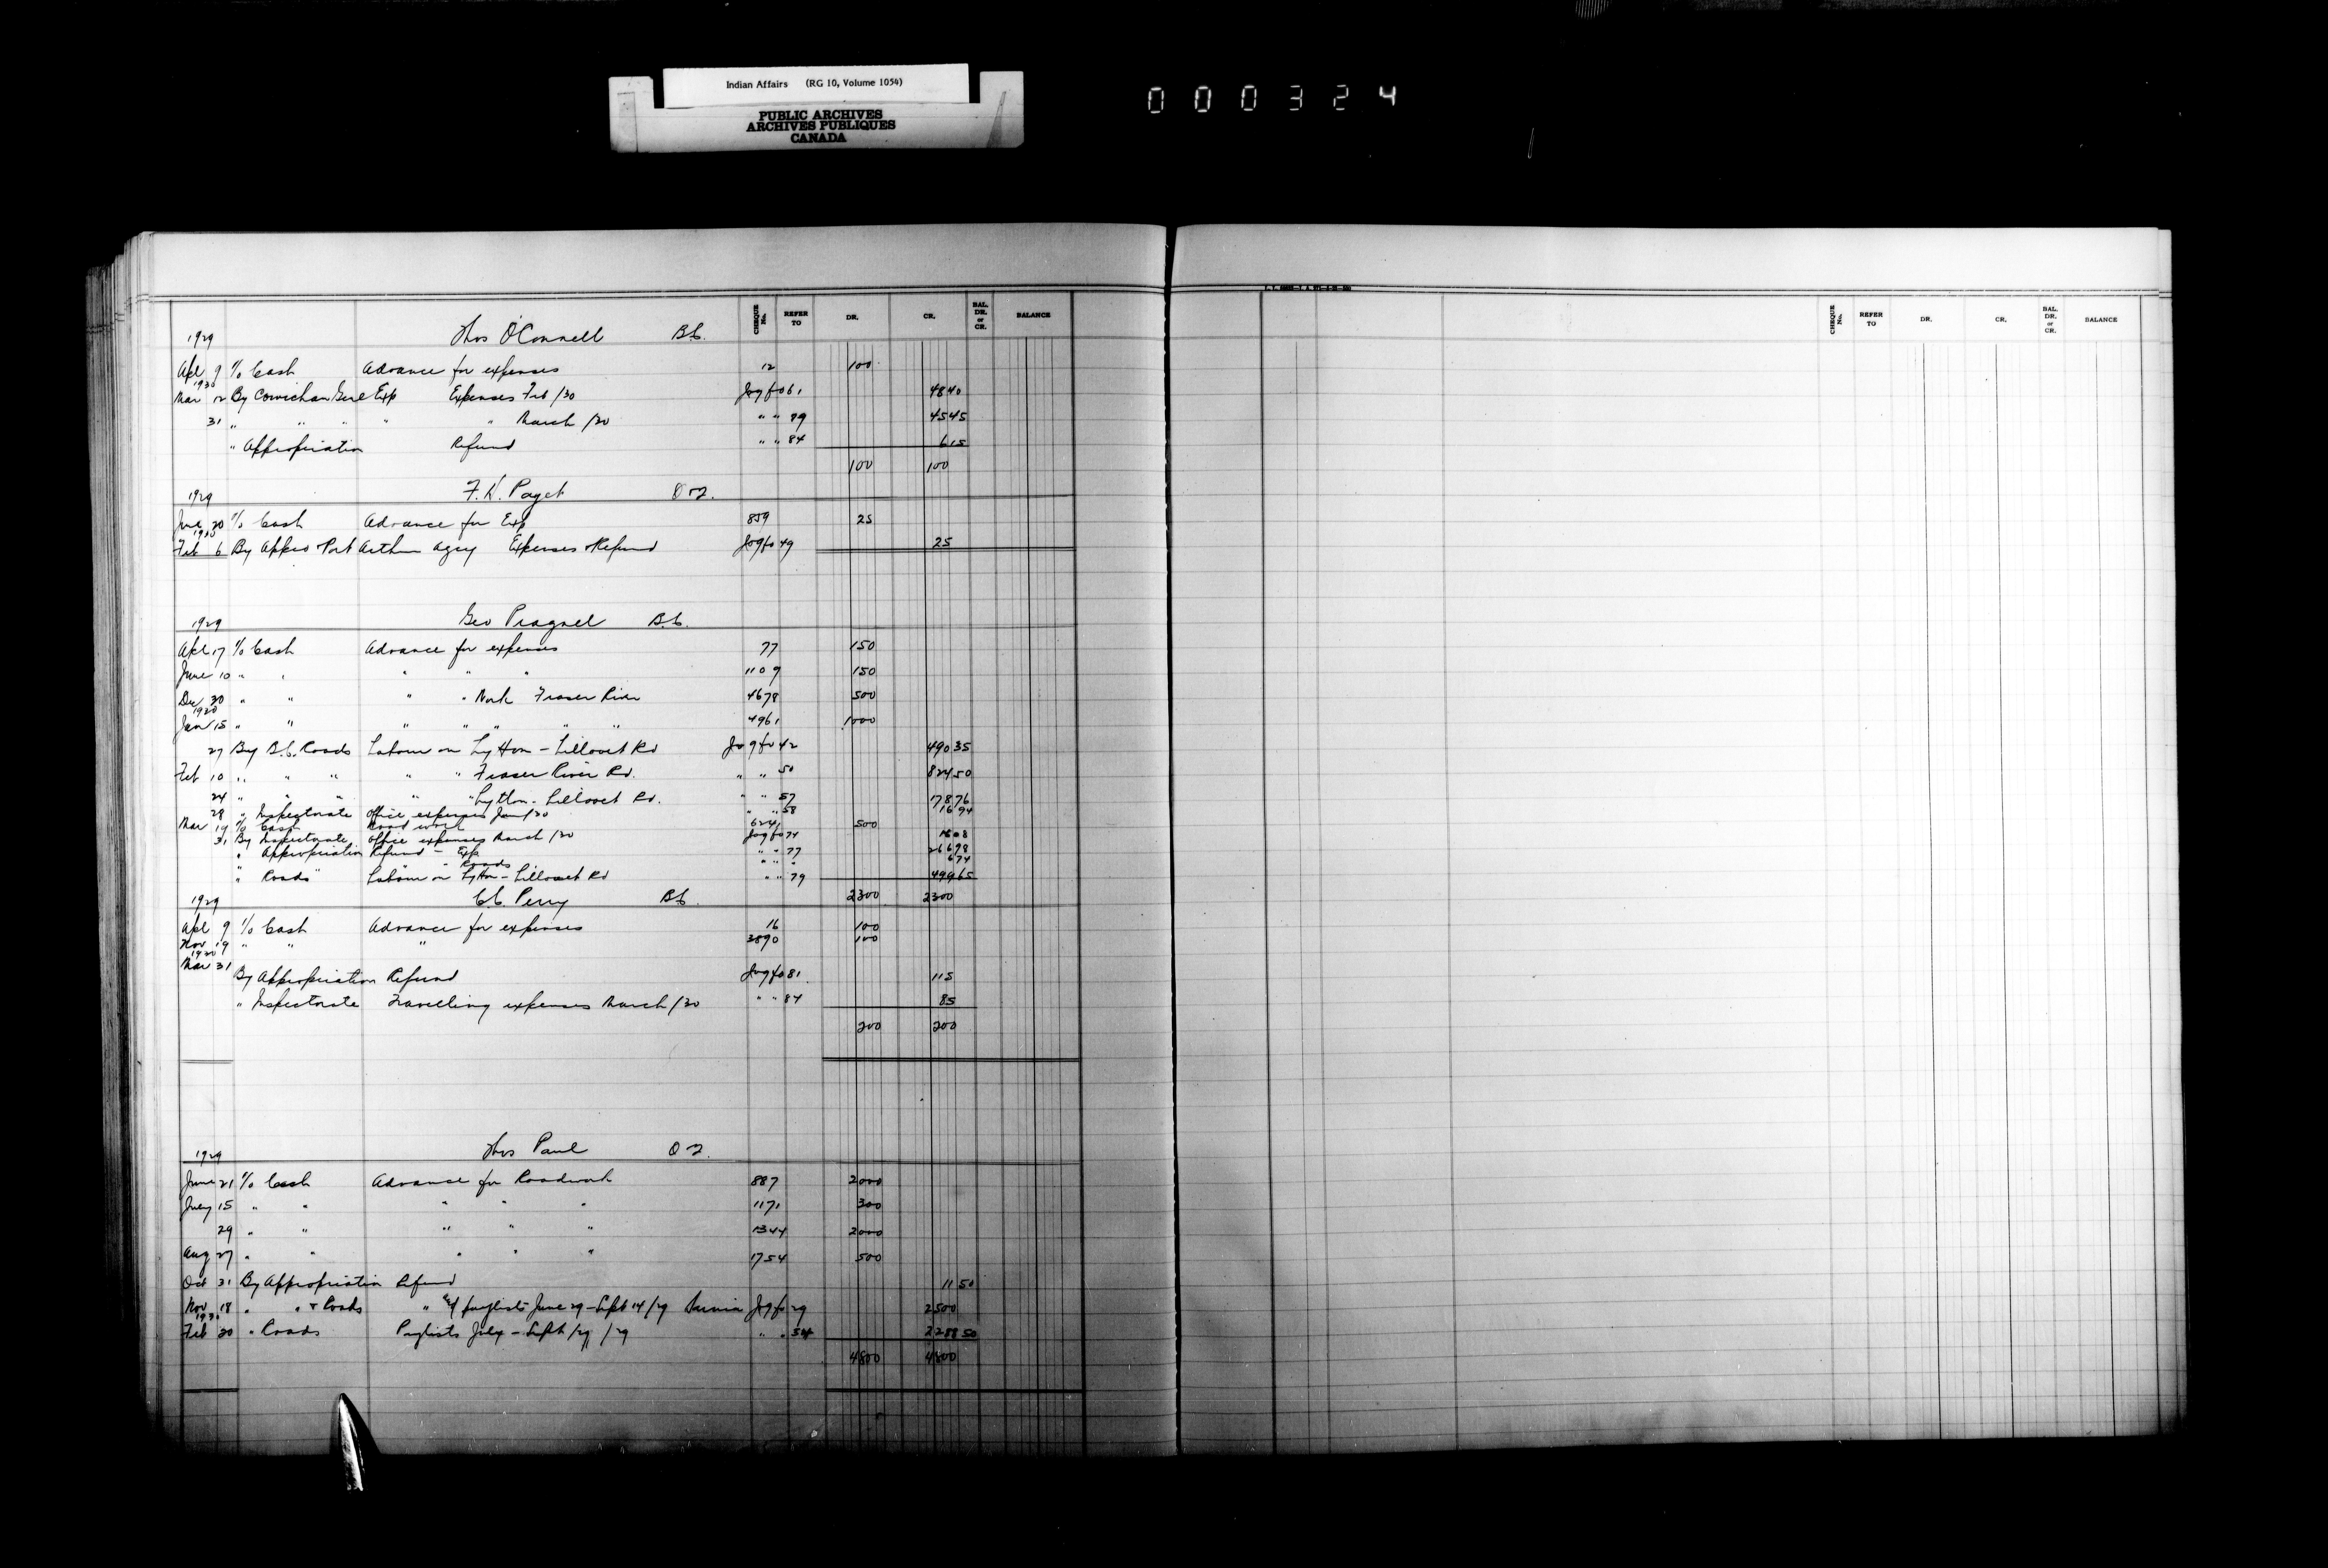 Indian Affairs (RG 10, Volume 1054)
PUBLIC ARCHIVES
ARCHIVES PUBLIQUES
CANADA
000324
CHEQUE No. REFER TO DR. CR. BAL. DR. or CR. BALANCE
CHEQUE No. REFER TO DR. CR. BAL. DR. or CR. BALANCE
1929 Thos O'Connell B.C.
Apl 9 % Cash Advance for expenses 12 100
1930
Mar 12 By Cowichan Genl Exp Expenses Feb/30 Jog fo 61 48 40
31 " " " " " March/30 " " 79 45 45
" Appropriation Refund " " 84 6 15
100 100
1929 F. H. Paget
June 20 % Cash Advance for Exp 859 25
1930
Feb 6 By Appro + Port Arthur Agcy Expenses + Refund Jog fo 49 25
1929 Geo Pragnell B.C.
Apl 17 % Cash Advance for expenses 77 150
June 10 " " " " " 1109 150
Dec 30 " " " " Work Fraser River 4678 500
1930
Jan 15 " " " " " " " 4961 1000
27 By B.C. Roads Labour on Lytton - Lillooet Rd Jog fo 42 490 35
Feb 10 " " " " " Fraser River Rd. " " 50 824 50
24 " " " " " Lytton - Lillooet Rd. " " 57 178 76
28 " Inspectorate Office expenses Jan/30 " " 58 16 94
Mar 19 % Cash Road work 6241 500
31 By Inspectorate Office expenses March/30 Jog fo 74
" Appropriation Refund - Exp " " 77 266 98
" " " " Roads " " " 6 74
" Roads " Labour on Lytton - Lillooet Rd " " 79 499 65
2300 2300
1929 C.C. Perry B.C.
Apl 9 % Cash Advance for expenses 16 100
Nov 19 " " " 3890 100
1930
Mar 31 By Appropriation Refund Jog fo 81 115
" Inspectorate Travelling expenses March/30 " " 84 85
200 200
1929 Thos Paul
June 21 % Cash Advance for Roadwork 887 2000
July 15 " " " " " 1171 300
29 " " " " " 1344 2000
Aug 27 " " " " " 1754 500
Oct 31 By Appropriation Refund 11 50
Nov 18 " " + Roads " + paylists June 29 - Sept 14/29 Sarnia Jog fo 29 2500
1930
Feb 20 " Roads Paylists July - Sept/29 /29 " " 54 2288 50
4800 4800